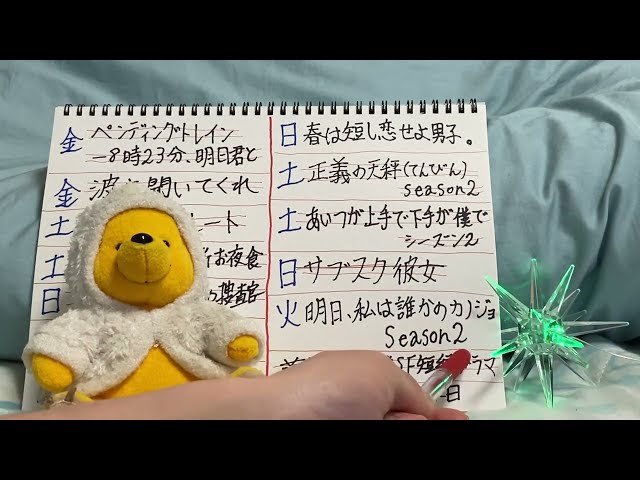 金 ペンディングトレイン
ー8時23分、明日君と
金 波 聞いてくれ
土 ート
土 お夜食
日 捜査官
日 春は短し恋せよ男子。
土 正義の天秤(てんびん)
season2
土 あいつが上手で下手が僕で
シーズン2
日 サブスク彼女
火 明日、私は誰かのカノジョ
Season2
SF短編 ラマ
日